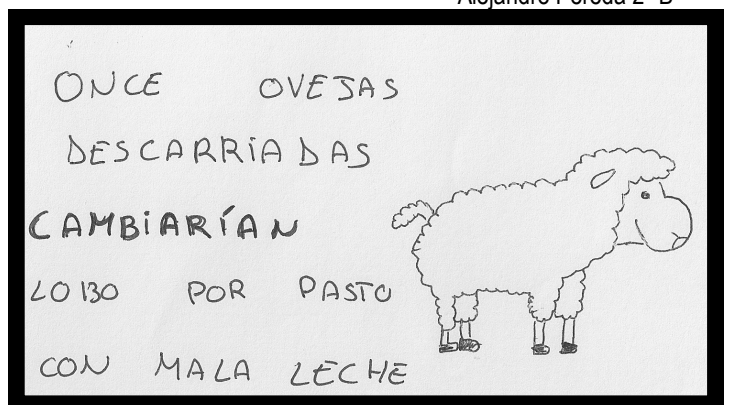 ONCE OVEJAS
DESCARRIADAS
CAMBIARÍAN
LOBO POR PASTO
CON MALA LECHE